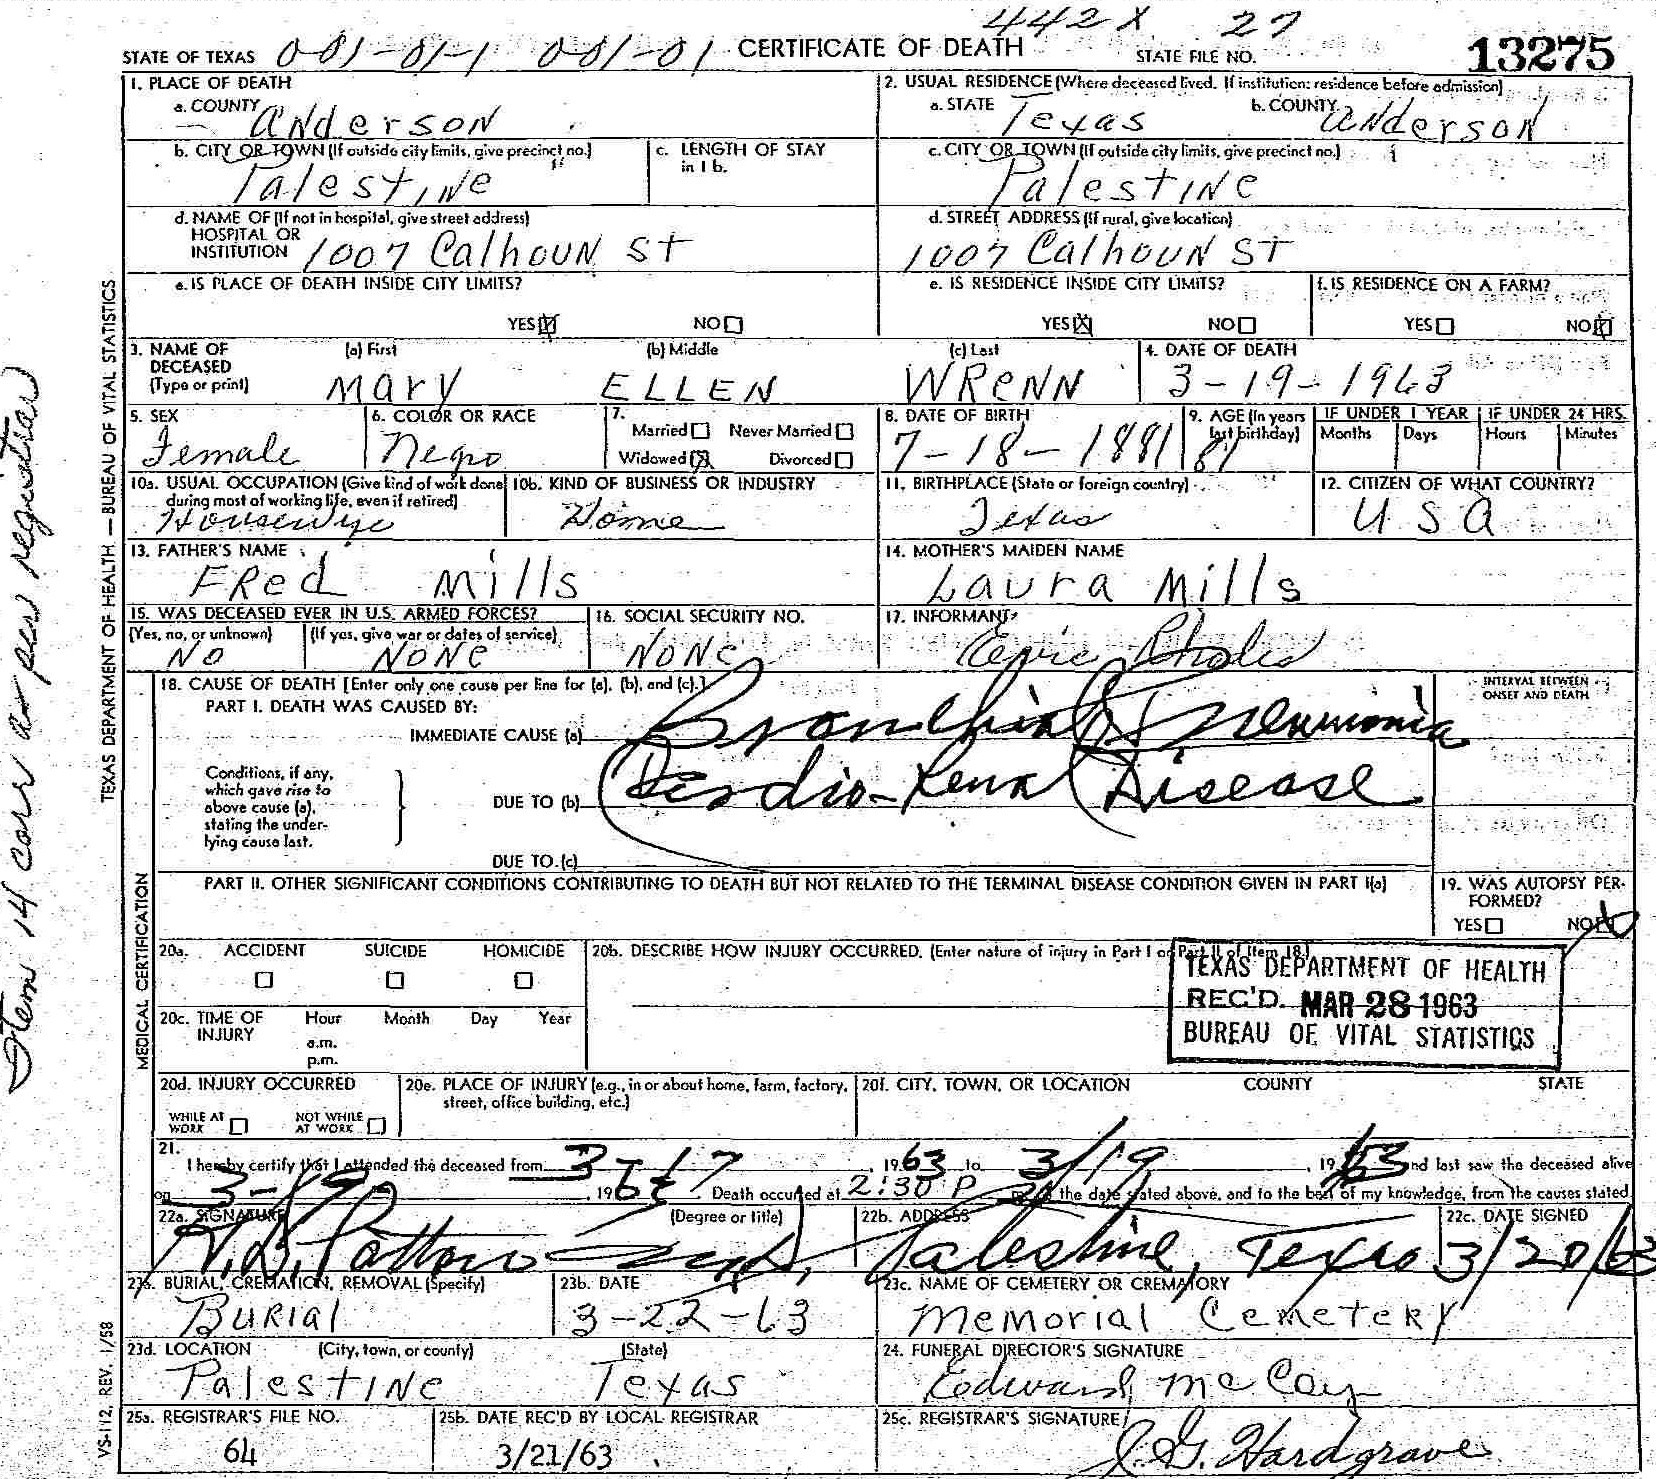 442 X 27
STATE OF TEXAS 001-01-1 001-01 CERTIFICATE OF DEATH STATE FILE NO. 13275
1. PLACE OF DEATH
a. COUNTY Anderson
2. USUAL RESIDENCE (Where deceased lived. If institution: residence before admission)
a. STATE Texas b. COUNTY Anderson
b. CITY OR TOWN (If outside city limits, give precinct no.) Palestine
c. LENGTH OF STAY in 1 b.
c. CITY OR TOWN (If outside city limits, give precinct no.) Palestine
d. NAME OF (If not in hospital, give street address) HOSPITAL OR INSTITUTION 1007 Calhoun St
d. STREET ADDRESS (If rural, give location) 1007 Calhoun St
e. IS PLACE OF DEATH INSIDE CITY LIMITS? YES ☒ NO ☐
e. IS RESIDENCE INSIDE CITY LIMITS? YES ☒ NO ☐
f. IS RESIDENCE ON A FARM? YES ☐ NO ☒
3. NAME OF DECEASED (Type or print) (a) First Mary (b) Middle ELLEN (c) Last WRENN
4. DATE OF DEATH 3-19-1963
5. SEX Female
6. COLOR OR RACE Negro
7. Married ☐ Never Married ☐ Widowed ☒ Divorced ☐
8. DATE OF BIRTH 7-18-1881
9. AGE (In years last birthday) 81
IF UNDER 1 YEAR Months Days
IF UNDER 24 HRS. Hours Minutes
10a. USUAL OCCUPATION (Give kind of work done during most of working life, even if retired) Housewife
10b. KIND OF BUSINESS OR INDUSTRY Home
11. BIRTHPLACE (State or foreign country) Texas
12. CITIZEN OF WHAT COUNTRY? USA
13. FATHER'S NAME Fred Mills
14. MOTHER'S MAIDEN NAME Laura Mills
15. WAS DECEASED EVER IN U.S. ARMED FORCES?
(Yes, no, or unknown) No (If yes, give war or dates of service) None
16. SOCIAL SECURITY NO. None
17. INFORMANT
18. CAUSE OF DEATH [Enter only one cause per line for (a), (b), and (c).]
PART I. DEATH WAS CAUSED BY:
IMMEDIATE CAUSE (a) Bronchial Pneumonia
INTERVAL BETWEEN ONSET AND DEATH
Conditions, if any, which gave rise to above cause (a), stating the underlying cause last.
DUE TO (b) Cardio-Renal Disease
DUE TO (c)
PART II. OTHER SIGNIFICANT CONDITIONS CONTRIBUTING TO DEATH BUT NOT RELATED TO THE TERMINAL DISEASE CONDITION GIVEN IN PART I(a)
19. WAS AUTOPSY PERFORMED? YES ☐ NO ☒
20a. ACCIDENT ☐ SUICIDE ☐ HOMICIDE ☐
20b. DESCRIBE HOW INJURY OCCURRED. (Enter nature of injury in Part I or Part II of Item 18.)
TEXAS DEPARTMENT OF HEALTH
REC'D. MAR 28 1963
BUREAU OF VITAL STATISTICS
20c. TIME OF INJURY Hour Month Day Year
a.m.
p.m.
20d. INJURY OCCURRED
WHILE AT WORK ☐ NOT WHILE AT WORK ☐
20e. PLACE OF INJURY (e.g., in or about home, farm, factory, street, office building, etc.)
20f. CITY, TOWN, OR LOCATION COUNTY STATE
21. I hereby certify that I attended the deceased from 3-17, 1963 to 3/19, 1963 and last saw the deceased alive
on 3-19, 1963. Death occurred at 2:30 P m on the date stated above, and to the best of my knowledge, from the causes stated.
22a. SIGNATURE (Degree or title)
22b. ADDRESS Palestine, Texas
22c. DATE SIGNED 3/20/63
23a. BURIAL, CREMATION, REMOVAL (Specify) Burial
23b. DATE 3-22-63
23c. NAME OF CEMETERY OR CREMATORY Memorial Cemetery
23d. LOCATION (City, town, or county) Palestine (State) Texas
24. FUNERAL DIRECTOR'S SIGNATURE Edward McCoy
25a. REGISTRAR'S FILE NO. 64
25b. DATE REC'D BY LOCAL REGISTRAR 3/21/63
25c. REGISTRAR'S SIGNATURE J. G. Hardgrave
TEXAS DEPARTMENT OF HEALTH — BUREAU OF VITAL STATISTICS
MEDICAL CERTIFICATION
VS-112, REV. 1/58
Item 14 corr as per registrar